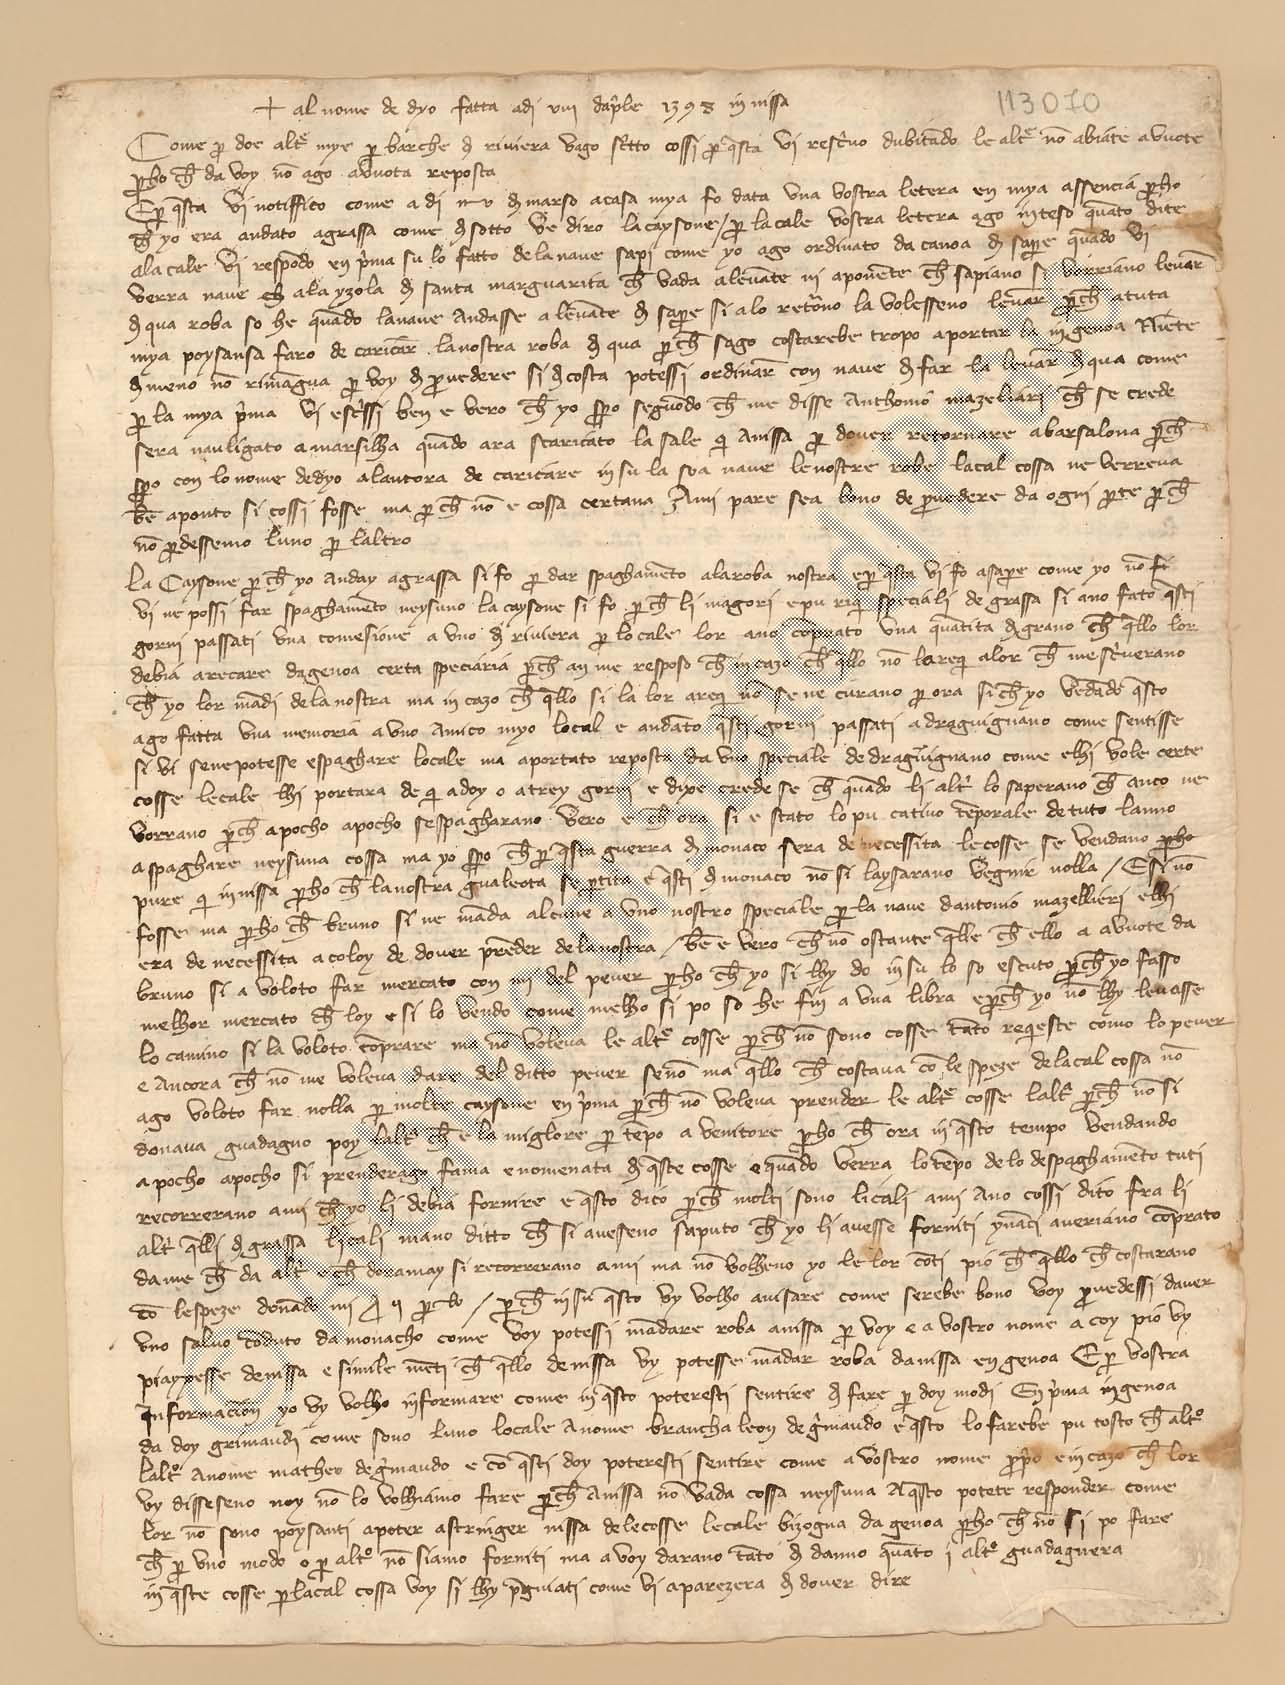 113070
+ al nome de dyo fatta adi viii daprle 1398 in nissa
Come p doe altre mye p barche d riviera vago scritto cossi p questa vi rescrivo dubitando le altre no abiate avute
pho ch da voy no ago avuta reposta
E p questa vi notiffico come adi de marso acasa mya fo data una vostra letera en mya assencia pho
ch yo era andato agrassa come d sotto ve diro la caysone / p la cale vostra letera ago inteso quanto dite
ala cale vi respondo en prima su lo fatto de la nave sapi come yo ago ordinato da canoa d sapere quando vi
verra nave ala yzola d santa marguarita ch vada alevante ni aponente ch sapiano si vorriano levar
d qua roba so he quando la nave andasse a levante d sapere si alo retorno la volesseno levar pch atuta
mya poysansa faro de caricar la nostra roba d qua pch sago costarebe tropo aportar la in genoa Niente
d meno no rimagua p voy d provedere si d costa potessi ordinar con nave d far la levar d qua come
p la mya prima vi escrissi ben e vero ch yo spo segondo ch me disse Anthonio mazelliari ch se crede
sera navligato a marsilha quando ara scaricato la sale qi Anissa p dover retornare abarsalona pch
spo con lo nome de dyo alautora de caricare in su la soa nave le nostre robe lacal cossa ne verreva
be aponto si cossi fosse ma pch no e cossa certana Ami pare sea bono de provedere da ogni parte pch
no pdessemo luno p laltro
La Caysone pch yo Anday agrassa si fo p dar spaghamento ala roba nostra e p questa vi fo asapere come yo no
vi ne possi far spaghamento neysuno la caysone si fo pch li magori e pu riqi speciali de grassa si ano fato questi
gorni passati una comesione a uno d riviera p lo cale lor ano comprato una quantita d grano ch quello lor
debia arecare d genoa certa speciaria pch an me resposo ch in cazo ch quello no la reqi alor ch me scriverano
ch yo lor mandi de la nostra ma in cazo ch quello si la lor areqi no se ne curano p ora si ch yo vedando questo
ago fatta una memoria a uno Amico myo lo cal e andato questi gorni passati a draguignano come sentisse
si vi se ne potesse espaghare lo cale ma aportato reposta da uno speciale de draguignano come elhi vole certe
cosse le cale lhi portara de qi a doy o a trey gorni e dixe crede se ch quando li altri lo saperano ch anco ne
vorrano pch apocho apocho se spagharano vero e ch ora si e stato lo pu cativo temporale de tuto lanno
a spaghare neysuna cossa ma yo spo ch p questa guerra d monaco sera de necessita le cosse se vendano pho
pure qi in nissa pho ch la nostra gualeota se partita e questi d monaco no si laysarano vegnir nolla / E si no
fosse ma pho ch bruno si ne manda alcune a uno nostro speciale p la nave dantonio mazellieri elhi
era de necessita a coloy de dover prender de la nostra / be e vero ch no ostante quelle ch ello a avute da
bruno si a voloto far mercato con mi del pever pho ch yo si lhy do in su lo so escuto pch yo fasso
melhor mercato ch loy e si lo vendo come melho si po so he fin a una libra e pch yo no lhy levasse
lo camino si la voloto comprare ma no voleva le altre cosse pch no sono cosse tanto reqeste como lo pever
e Ancora ch no me voleva dare del ditto pever seno ma quello ch costava co le speze de la cal cossa no
ago voloto far nolla p molte caysone en prima pch no voleva prender le altre cosse laltra pch no si
donava guadagno poy laltra ch e la miglore p tempo a venitore pho ch ora in questo tempo vendando
apocho apocho si prenderago fama e nomenata d queste cosse e quando verra lo tempo de lo despaghamento tuti
recorrerano ami ch yo li debia fornire e questo dico pch molti sono li cali ami Ano cossi dito fra li
altri quelli d grassa li cali mano ditto ch si avesseno saputo ch yo li avesse forniti ynanci averiano comprato
da me ch da altri e ch doramay si recorrerano ami ma no volheno yo le lor conti pio ch quello ch costarano
co le speze donando mi / pch in su questo vy volho avisare come serebe bono voy provedessi daver
uno salvo conduto da monacho come voy potessi mandare roba anissa p voy e a vostro nome a coy pio vy
piaypesse de nissa e simile menti ch quello de nissa vy potesse mandar roba da nissa en genoa E p vostra
Informacion yo vy volho informare come in questo poteresti sentire d fare p doy modi En prima in genoa
da doy grimaudi come sono luno lo cale A nome brancha leon de grimaudo e questo lo farebe pu tosto ch altro
laltro A nome matheo de grimaudo e co questi doy poteresti sentire come a vostro nome propio e in cazo ch lor
vy disseseno noy no lo volhiamo fare pch Anissa no vada cossa neysuna A questo potete responder come
lor no sono poysanti apoter astringer nissa de le cosse le cale bizogna da genoa pho ch no si po fare
ch p uno modo o p altro no siamo forniti ma a voy darano tanto d danno quanto i altro guadagnera
in queste cosse p la cal cossa voy si lhy pregniati come vi aparezera d dover dire